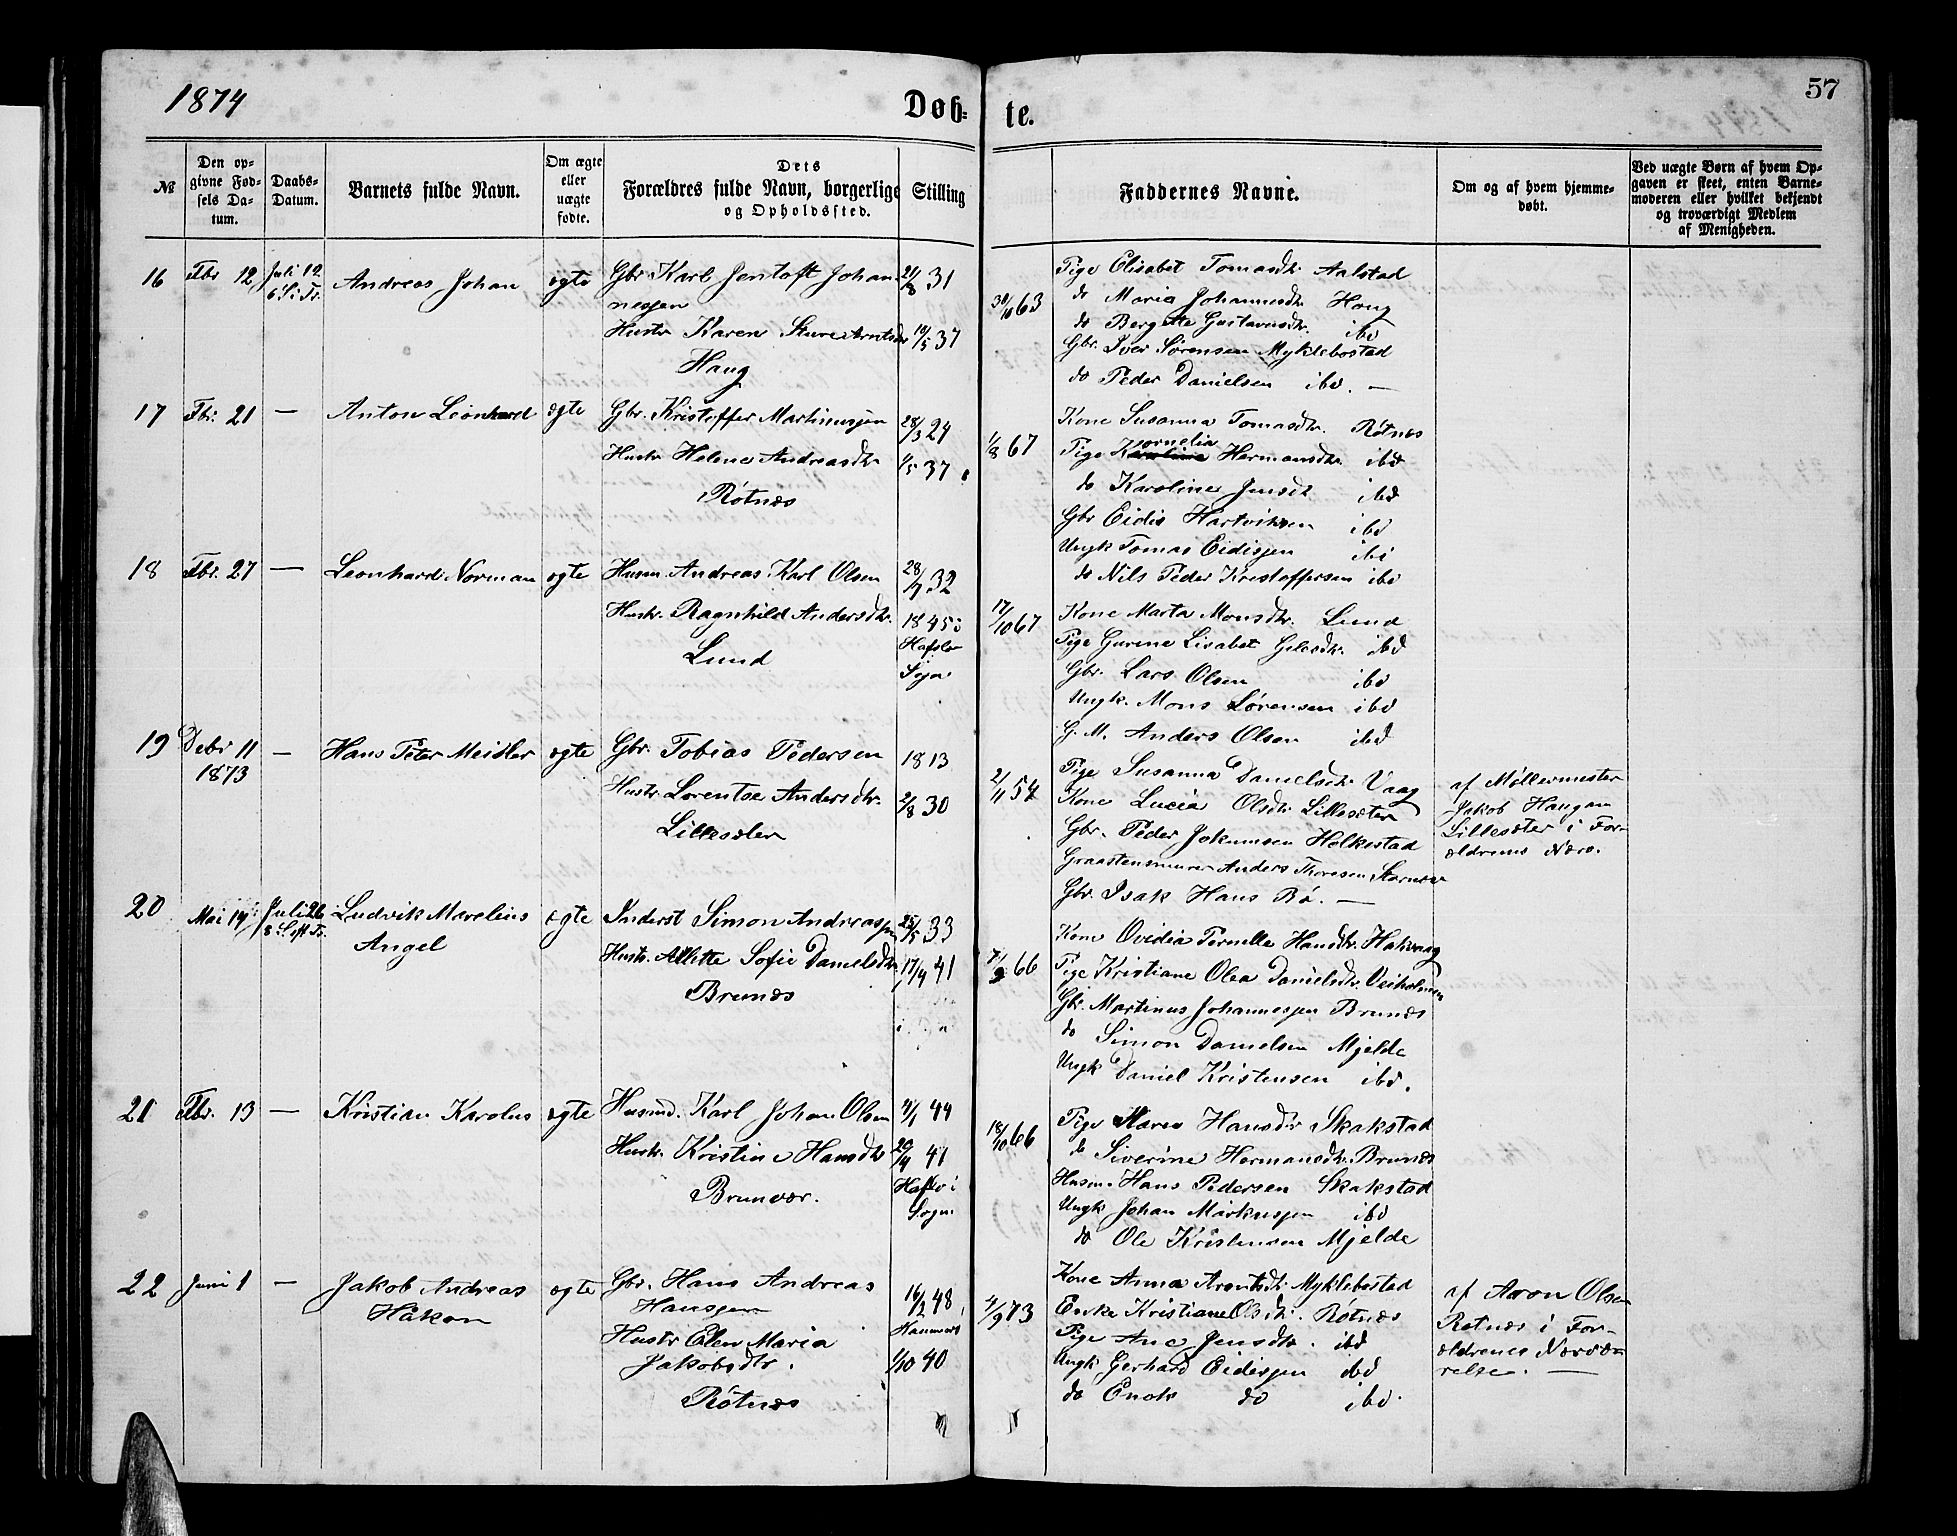 1874
Døb-
te.
57
№
Den op-
givne Fød-
sels Da-
tum.
Daabs-
Datum.
Barnets fulde Navn.
Om ægte
eller
uægte
fødte.
Dets
Forældres fulde Navn, borgerlige
Stilling
og Opholdssted.
Faddernes Navne.
Om og af hvem hjemme-
døbt.
Ved uægte Børn af hvem Op-
gaven er skeet, enten Barne-
moderen eller hvilket bekjendt
og troværdigt Medlem
af Menigheden.
16 Fbr 12 Juli 12 Andreas Johan ægte Gbr. Karl Jentoft Johan
6 S. i Tr.
21/8 31
nesjen
Hustr Karen Arntsdr 19/5 37
Haug
30/10 63
Pige Elisabet Tomasdtr. Aalstad
do Maria Johannesdtr Haug
do Bergitte Gustavusdtr. ibd
Gbr. Iver Sørensen Myklebostad
do Peder Danielsen ibd. —
17 Fbr. 21 — Anton Leonhard ægte Gbr. Kristoffer Martinusjen 28/3 24
Hustr Helene Andreasdtr 1/5 37
Røtnæs
1/8 67
Kone Susanna Tomasdtr. Røtnæs
ornelia
Pige Karoline Hermansdtr. ibd
do Karoline Jensdt ibd
Gbr Eidis Hartviksen ibd
Ungk Tomas Eidisjen ibd
do Nils Peder Kristoffersen ibd
18 Fbr. 27 — Leonhard Norman ægte Husm. Andreas Karl Olsen 28/7 32
Hustr. Ragnhild Andersdtr. 1845 i
Hafslo
Lund
17/10 67
Kone Marta Monsdtr. Lund
Pige Gurine Lisabet ibd
Gbr. Lars Olsen ibd
Ungk. Mons Sørensen ibd
G. M. Anders Olsen ibd
19 Debr 11 — Hans Peter Meidler ægte Gbr. Tobias Pedersen 1813
1873
Hustr. Lorentse Andersdtr. 2/8 30
Lillesæter
2/11 54
Pige Susanna Danielsdtr. Vaag
Kone Lucia Olsdtr. Lillesæter
Gbr. Peder Jokumsen Helkestad
Graastensmurer Anders Thoresen
Gbr. Isak Hans Bø. —
af Møllermester
Jakob Haugan
Lillesæter i For-
ældrenes Nærv.
20 Mai 14 Juli 26 Ludvik Marelius ægte Inderst Simon Andreasjen 25/5 33
8 S. eft Tr.
Angel
Hustr. Allette Sofie Danielsdtr 17/4 41
Brunæs
7/9 66
Kone Ovidia Pernille Hansdtr. Hakvaag
Pige Kristiane Olea Danielsdtr. Veiholmen
Gbr. Martinus Johannesjen Brunæs
do Simon Danielsen Mjelde
Ungk Daniel Kristensen ibd.
21 Fbr. 13 — Kristian Karolus ægte Husmd. Karl Johan Olsen 4/1 44
Hustr. Kristine Hansdtr 20/4 41
Hafslo i
Brunvær.
Sogn
18/10 66
Pige Maren Hansdtr Skakstad
do Siverine Hermansdtr. Brunæs
Husm. Hans Pedersen Skakstad
Ungk Johan Markusjen ibd
do Ole Kristensen Mjelde
22 Juni 1 — Jakob Andreas ægte Gbr. Hans Andreas
Håkon
Hansjen
16/2 48
Hammerø
Hustr Elen Maria
Jakobsdtr.
1/10 40
Røtnæs
4/9 73
Kone Anna Arentsdtr. Myklebostad
Enke Kristiane Olsdtr. Røtnæs
Pige Ane Jensdtr. ibd
Ungk Gerhard Eidisjen ibd
do Enok do ibd.
af Aron Olsen
Røtnæs i For-
ældrenes Nærvæ-
relse. —